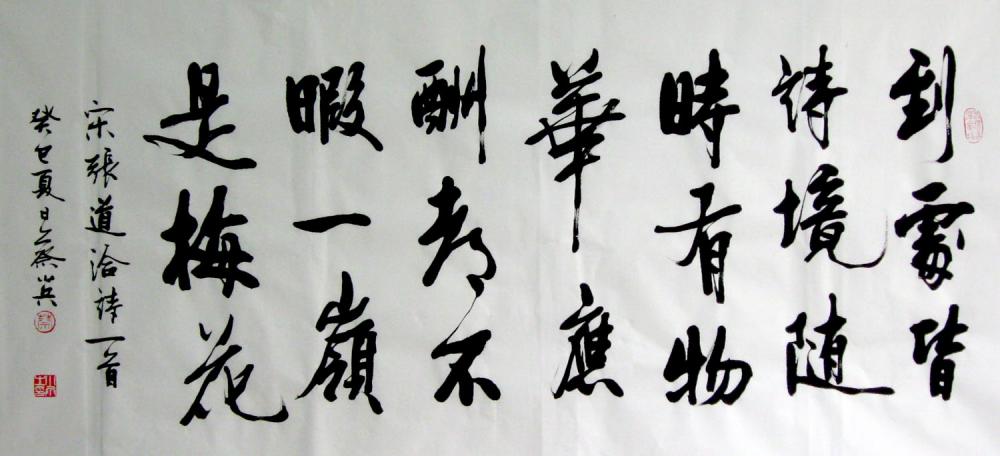 到處皆
詩境随
時有物
華應
酬都不
暇一嶺
是梅花
宋張道洽詩一首
癸巳夏日